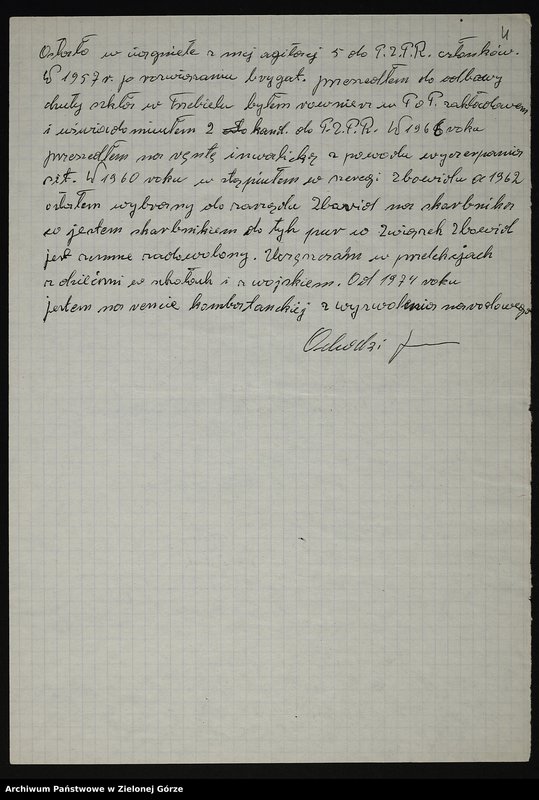 4
Ostało w ciągniete z mej agitacji 5 do P.Z.P.R. członków.
W 1957 r. po rozwiązaniu brygat. przeszedłem do odbawy
chuty szkła w Trebielu byłem rownierz w P o P. zakładowem
i uświadomiułem 2 do kand. do P.Z.P.R. W 1966 roku
przeszedłem na ręntę inwalicką z powodu wyczerpania
W 1960 roku w stąpiułem w szeregi Zbowidu a 1962
ostałem wybrany do zarządu Zbowid na skarbnika
w jestem skarbnikiem do tyh pur w Związek Zbowid
jest zemne zadowolony. Uczęszczałm w prelekcjach
z dziećmi w szkołach i z wojskiem. Od 1974 roku
jestem na rencie kombatanckiej z wyzwolenia narodowego
Archiwum Państwowe w Zielonej Górze